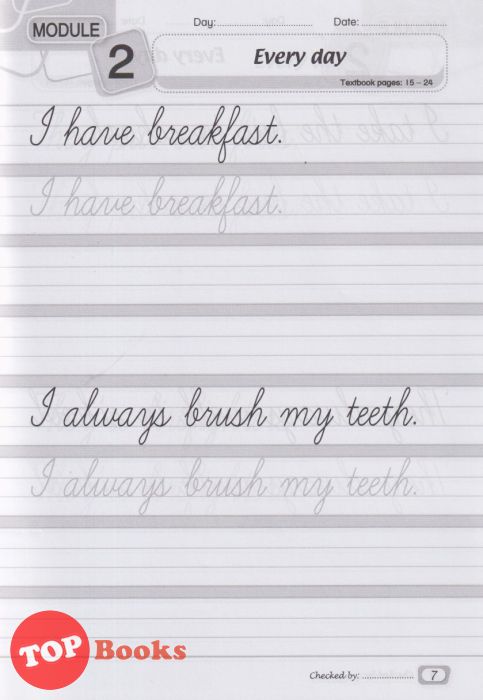 MODULE
2
Day:
Date:
Every day
Textbook pages: 15 – 24
I have breakfast.
I have breakfast.
I always brush my teeth.
I always brush my teeth.
TOP Books
Checked by:
7